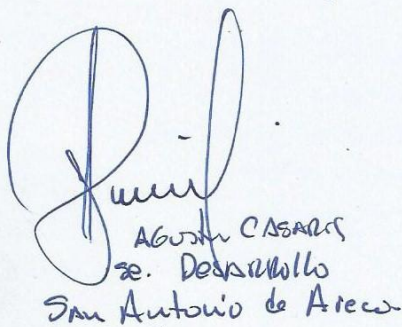 AGUSTIN CASARES
Se. DESARROLLO
San Antonio de Areco